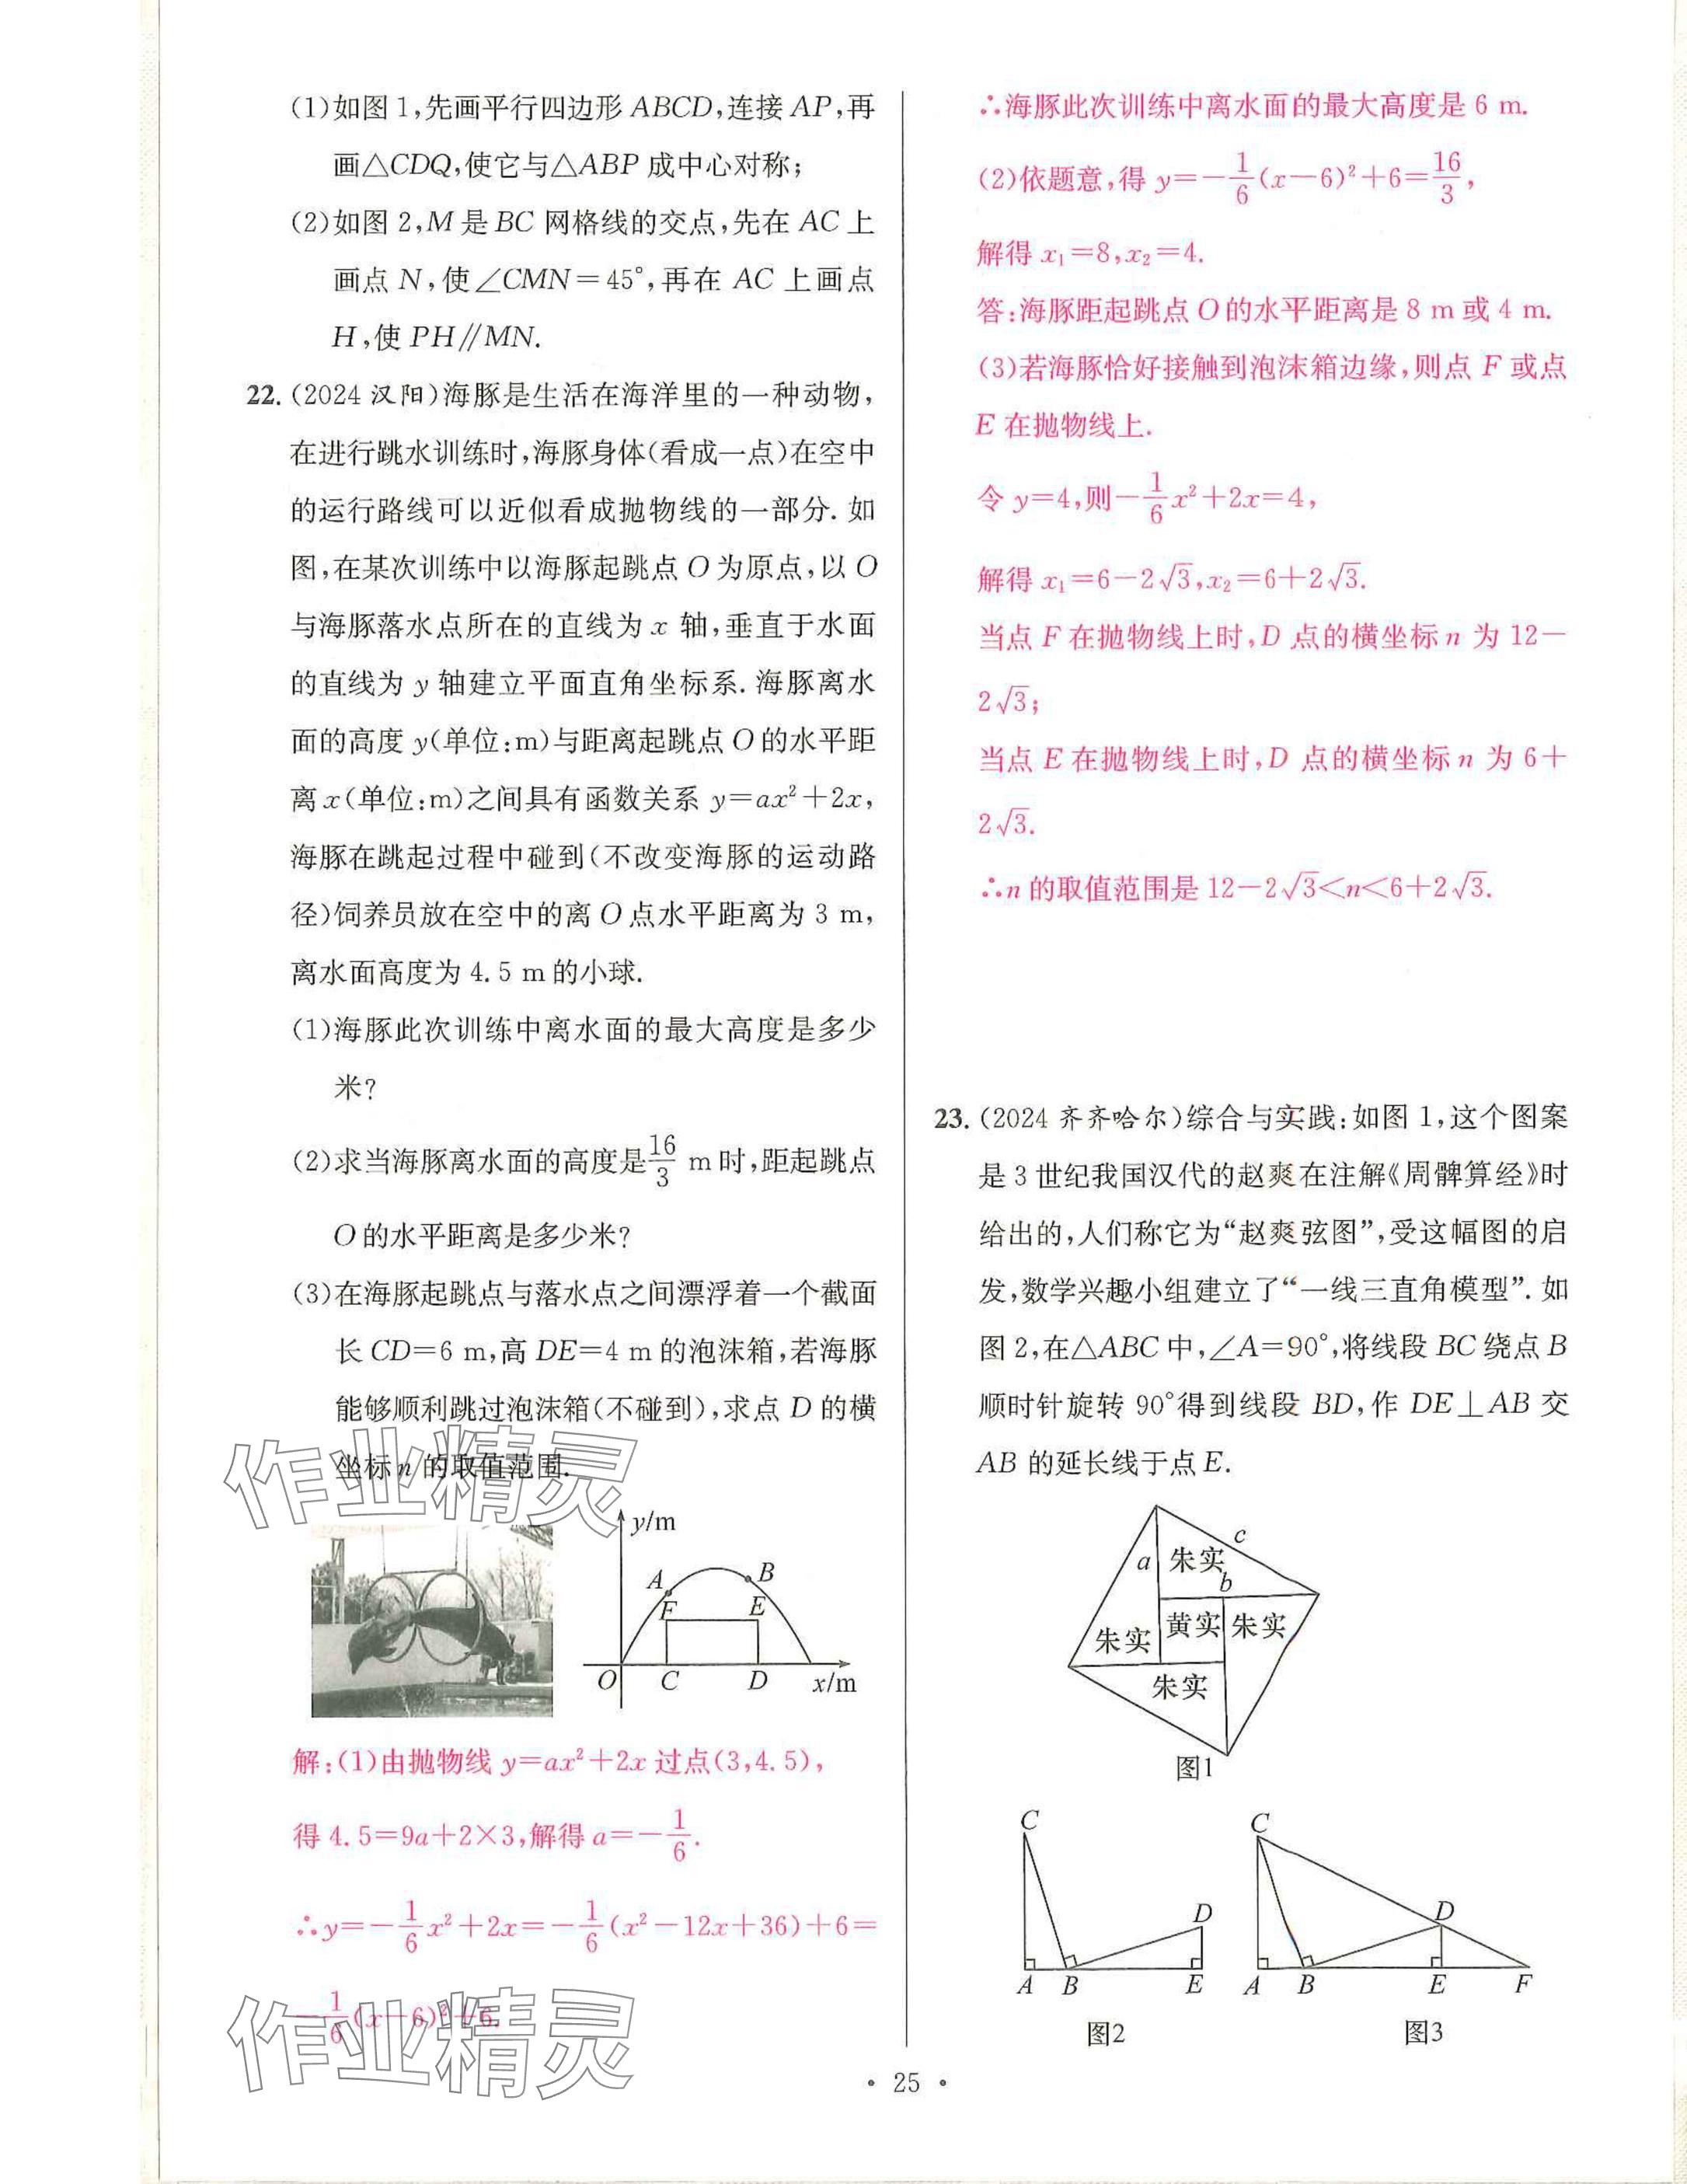 (1)如图1,先画平行四边形ABCD,连接AP,再
画△CDQ,使它与△ABP成中心对称;
(2)如图2,M是BC网格线的交点,先在AC上
画点N,使∠CMN=45°,再在AC上画点
H,使PH∥MN.
22.(2024汉阳)海豚是生活在海洋里的一种动物,
在进行跳水训练时,海豚身体(看成一点)在空中
的运行路线可以近似看成抛物线的一部分.如
图,在某次训练中以海豚起跳点O为原点,以O
与海豚落水点所在的直线为x轴,垂直于水面
的直线为y轴建立平面直角坐标系.海豚离水
面的高度y(单位:m)与距离起跳点O的水平距
离x(单位:m)之间具有函数关系y=ax²+2x,
海豚在跳起过程中碰到(不改变海豚的运动路
径)饲养员放在空中的离O点水平距离为3 m,
离水面高度为4.5 m的小球.
(1)海豚此次训练中离水面的最大高度是多少
米?
(2)求当海豚离水面的高度是16/3 m时,距起跳点
O的水平距离是多少米?
(3)在海豚起跳点与落水点之间漂浮着一个截面
长CD=6 m,高DE=4 m的泡沫箱,若海豚
能够顺利跳过泡沫箱(不碰到),求点D的横
坐标n的取值范围.
作业精灵
y/m
A
B
F
E
O
C
D
x/m
解:(1)由抛物线y=ax²+2x过点(3,4.5),
得4.5=9a+2×3,解得a=-1/6.
∴y=-1/6x²+2x=-1/6(x²-12x+36)+6=
-1/6(x-6)²+6.
作业精灵
∴海豚此次训练中离水面的最大高度是6 m.
(2)依题意,得y=-1/6(x-6)²+6=16/3,
解得x₁=8,x₂=4.
答:海豚距起跳点O的水平距离是8 m或4 m.
(3)若海豚恰好接触到泡沫箱边缘,则点F或点
E在抛物线上.
令y=4,则-1/6x²+2x=4,
解得x₁=6-2√3,x₂=6+2√3.
当点F在抛物线上时,D点的横坐标n为12-
2√3;
当点E在抛物线上时,D点的横坐标n为6+
2√3.
∴n的取值范围是12-2√3<n<6+2√3.
23.(2024齐齐哈尔)综合与实践:如图1,这个图案
是3世纪我国汉代的赵爽在注解《周髀算经》时
给出的,人们称它为“赵爽弦图”,受这幅图的启
发,数学兴趣小组建立了“一线三直角模型”.如
图2,在△ABC中,∠A=90°,将线段BC绕点B
顺时针旋转90°得到线段BD,作DE⊥AB交
AB的延长线于点E.
c
a 朱实
b
朱实 黄实 朱实
朱实
图1
C
D
A B E
图2
C
D
A B E F
图3
• 25 •